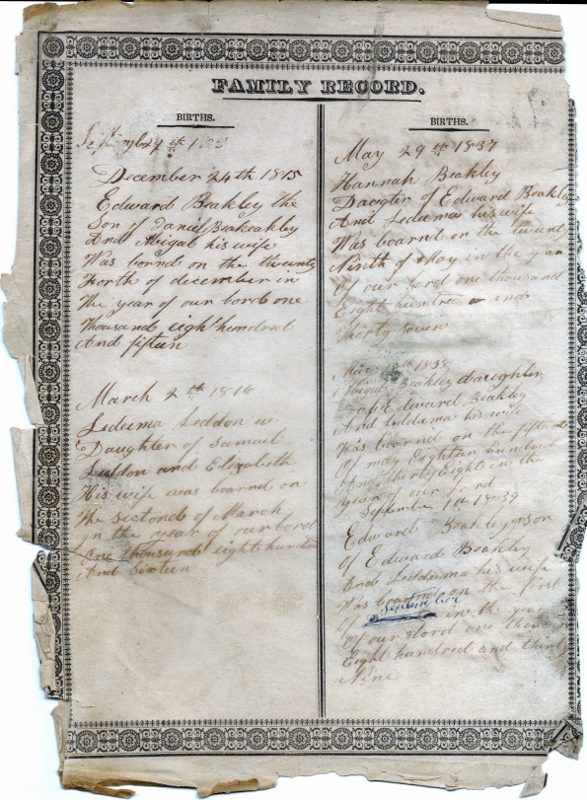 FAMILY RECORD.
BIRTHS.
December 24th 1815
Edward Beakley the
Son of Daniel Beakeakley
And Abigal his wife
Was bornd on the twenty
Forth of december in
The year of our lord one
Thousand eight hundred
And fifteen
March 2th 1816
Ledeema Leddon
Daughter of Samuel
Leddon and Elizabeth
His wife was boarnd on
The sectond of March
in the year of our lord
One thousand eight hundr
And Sixteen
BIRTHS.
May 29th 1837
Hannah Beakley
Daugter of Edward Beakly
And Ledeema his wife
Was boarnd on the twenty
Ninth of May in the yea
Of our lord one thousand
Eight hundred end
Thirty Seven
May 1838
Abigal Beakley daughter
Edward Beakley
And Leddama his wife
Was boarnd on the fifteent
Of may Eighteen hundred
And thirty Eight in the
year of our lord
September 1th 1839
Edward Beakley son
Of Edward Beakley
And Leddama his wife
Was boarnd on the first
Of September in the year
Of our lord one thousand
Eight hundred and thirty
Nine